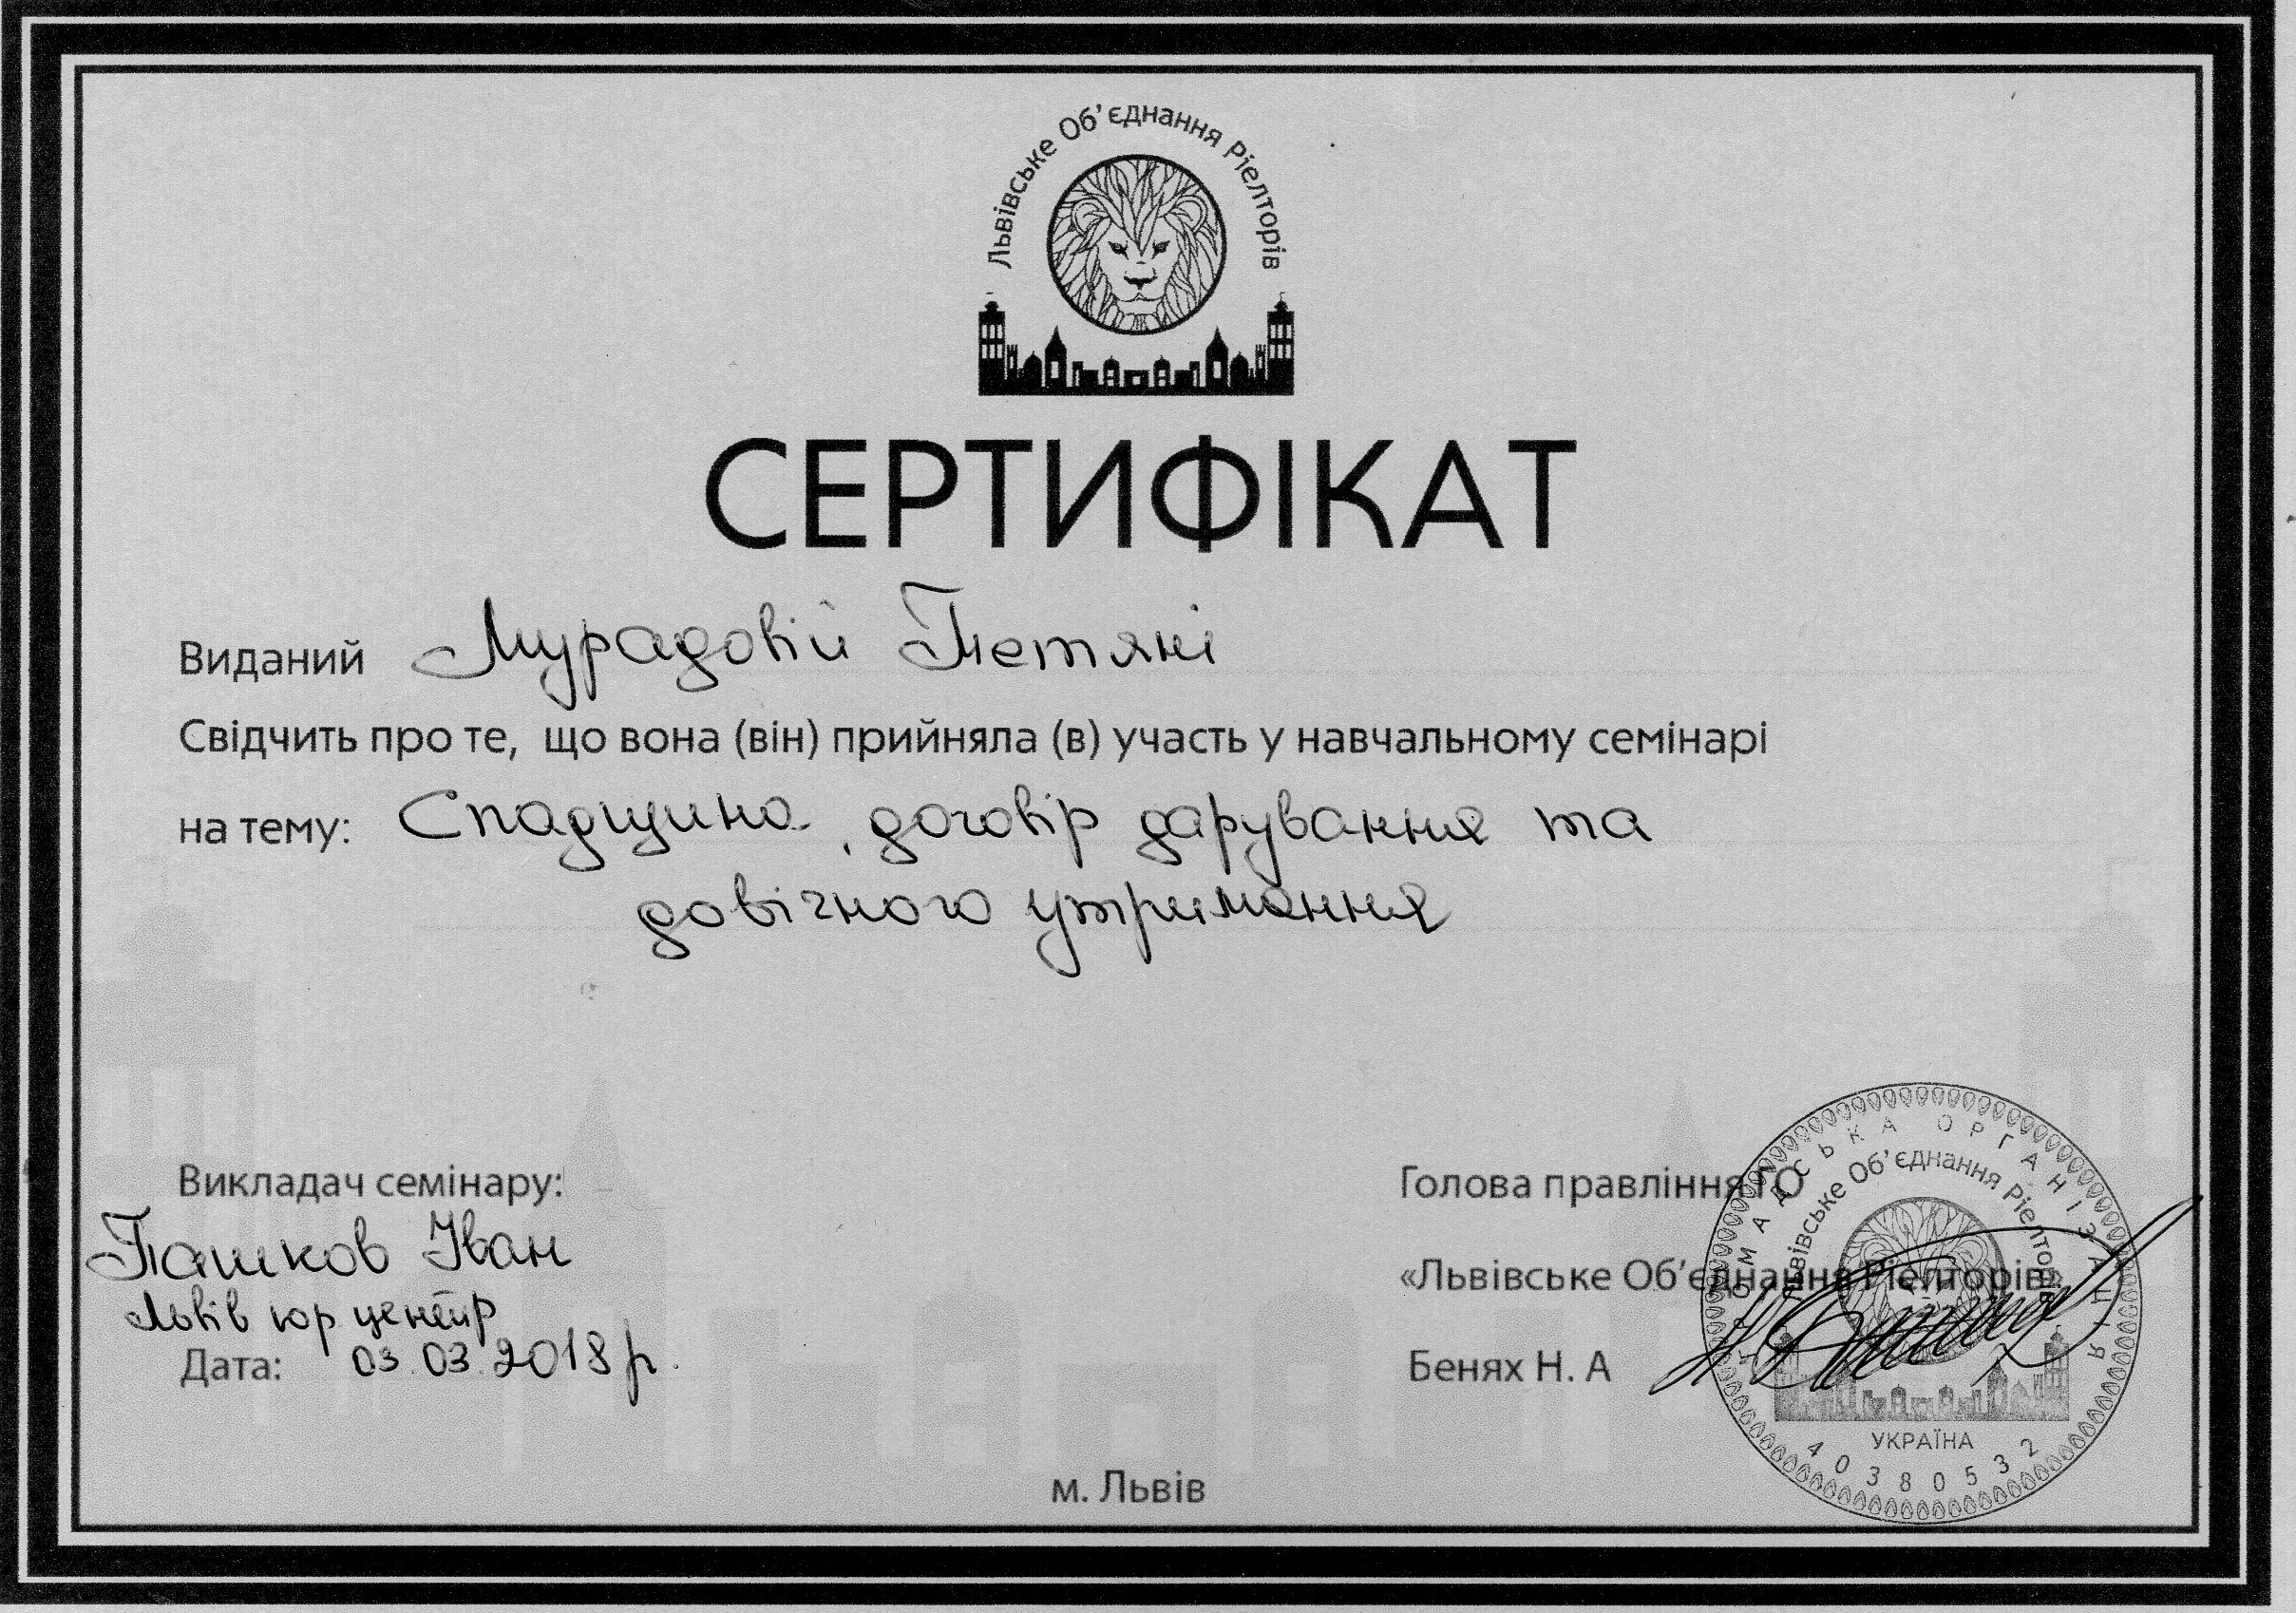 Львівське Об'єднання Рієлторів
СЕРТИФІКАТ
Виданий Мурадовій Тетяні
Свідчить про те, що вона (він) прийняла (в) участь у навчальному семінарі
на тему: Спадщина, договір дарування та
довічного утримання
Викладач семінару:
Пашков Іван
Львів юр центр
Дата: 03.03.2018 р.
Голова правління ГО
«Львівське Об'єднання Рієлторів»
Бенях Н. А
ГРОМАДСЬКА ОРГАНІЗАЦІЯ
Львівське Об'єднання Рієлторів
УКРАЇНА
40380532
м. Львів